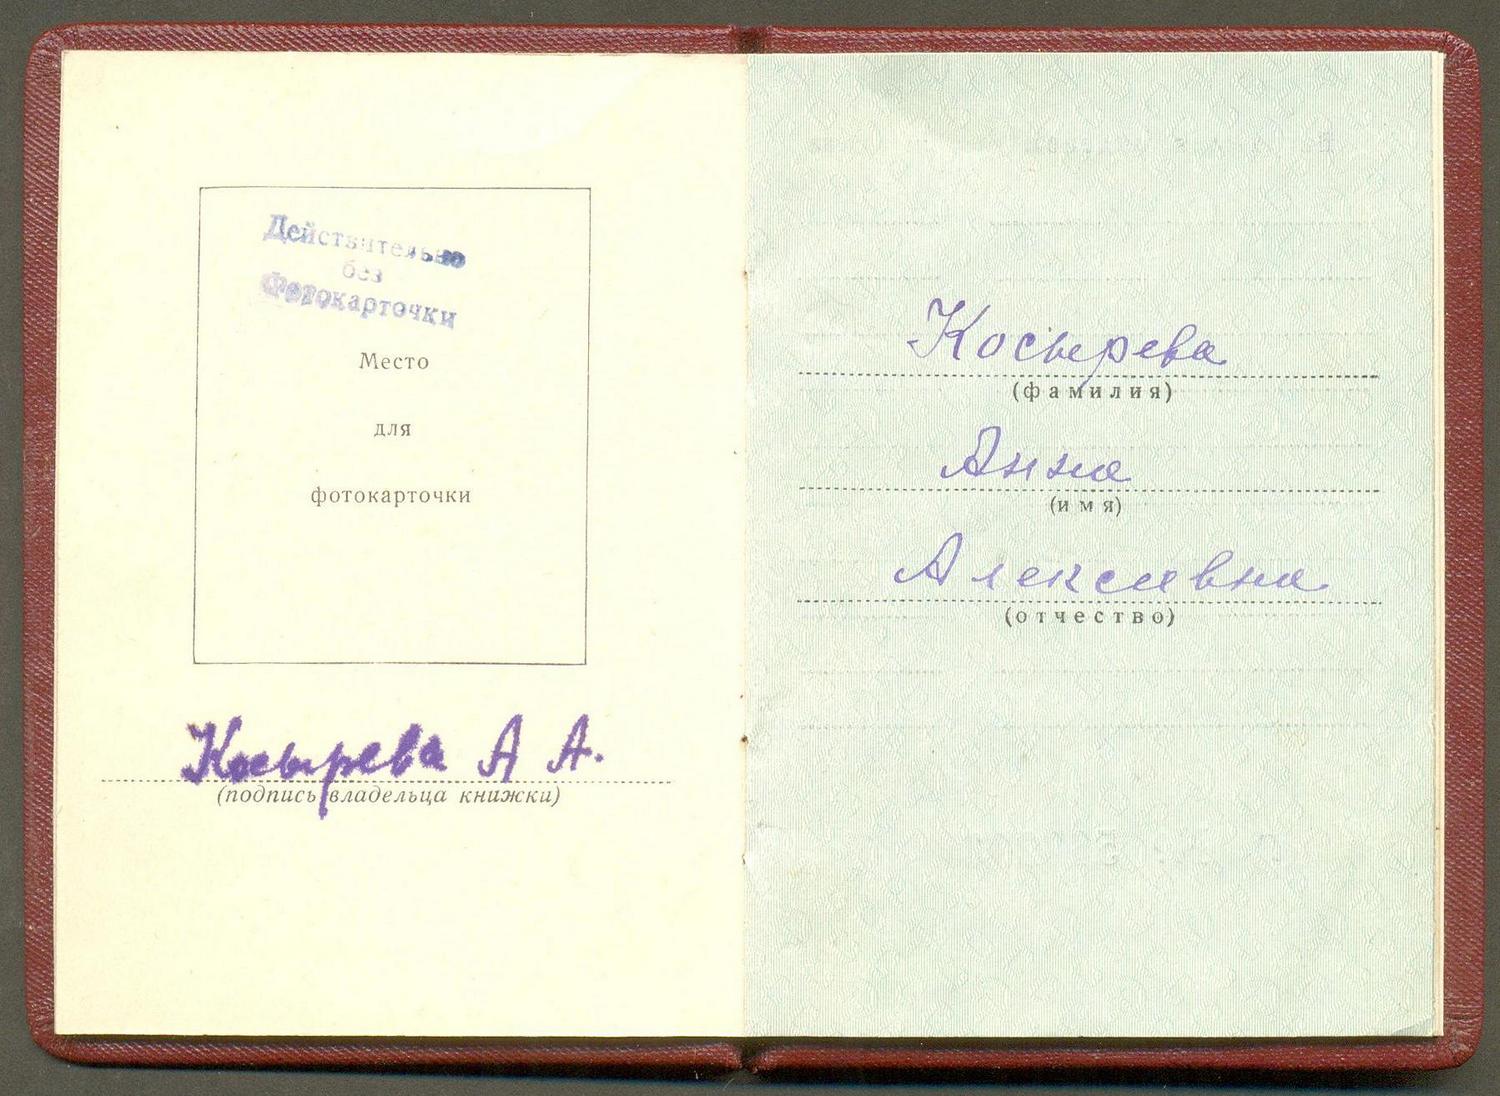 Действительно
без
Фотокарточки
Место
для
фотокарточки
Косырева А А.
(подпись владельца книжки)
Косырева
(фамилия)
Анна
(имя)
Алексеевна
(отчество)